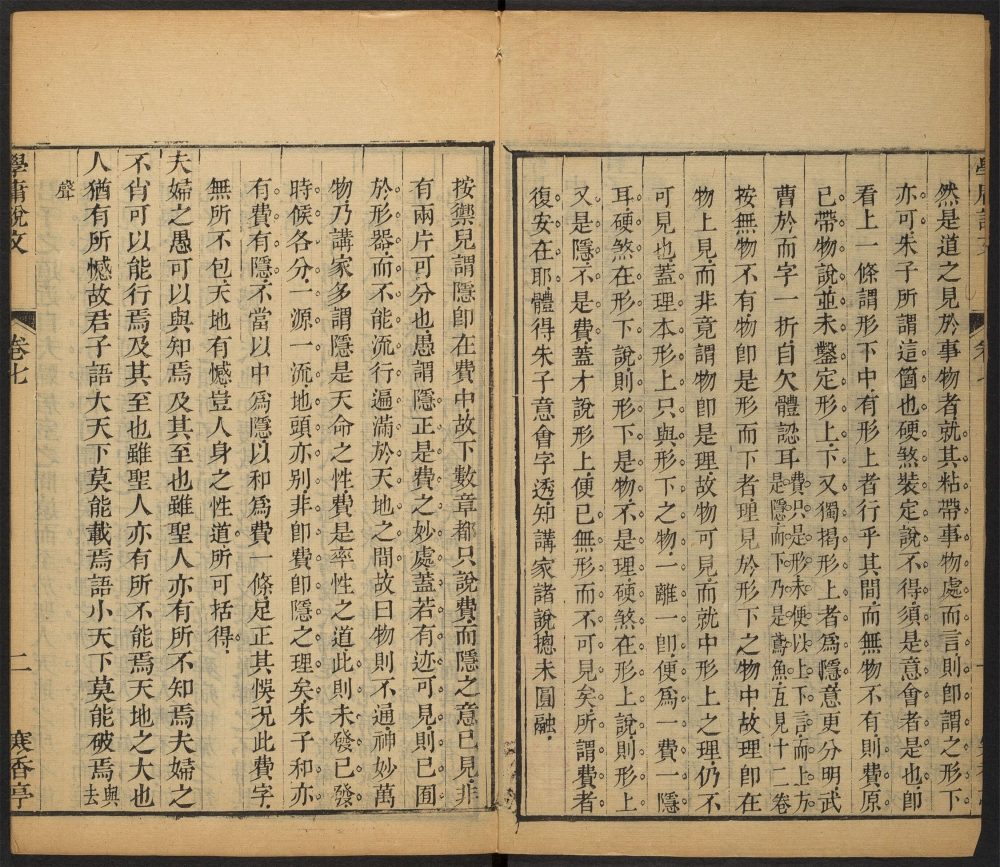 然是道之見於事物者就其粘帶事物處而言則即謂之形下
亦可朱子所謂這箇也硬煞裝定說不得須是意會者是也即
看上一條謂形下中有形上者行乎其間而無物不有則費原
已帶物說並未鑿定形上下又獨揭形上者為隱意更分明武
曹於而字一折自欠體認耳費只是形未便以上下言而上方是隱而下乃是鳶魚互見十二卷
按無物不有物即是形而下者理見於形下之物中故理即在
物上見而非竟謂物即是理故物可見而就中形上之理仍不
可見也蓋理本形上只與形下之物一離一即便為一費一隱
耳硬煞在形下說則形下是物不是理硬煞在形上說則形上
又是隱不是費蓋才說形上便已無形而不可見矣所謂費者
復安在耶體得朱子意會字透知講家諸說摠未圓融
按禦兒謂隱即在費中故下數章都只說費而隱之意已見非
有兩片可分也愚謂隱正是費之妙處蓋若有迹可見則已囿
於形器而不能流行遍滿於天地之間故曰物則不通神妙萬
物乃講家多謂隱是天命之性費是率性之道此則未發已發
時候各分一源一流地頭亦別非即費即隱之理矣朱子和亦
有費有隱不當以中為隱以和為費一條足正其悞況此費字
無所不包天地有憾豈人身之性道所可括得
夫婦之愚可以與知焉及其至也雖聖人亦有所不知焉夫婦之
不肖可以能行焉及其至也雖聖人亦有所不能焉天地之大也
人猶有所憾故君子語大天下莫能載焉語小天下莫能破焉與去
聲
學庸說文
卷七
二
寒香亭